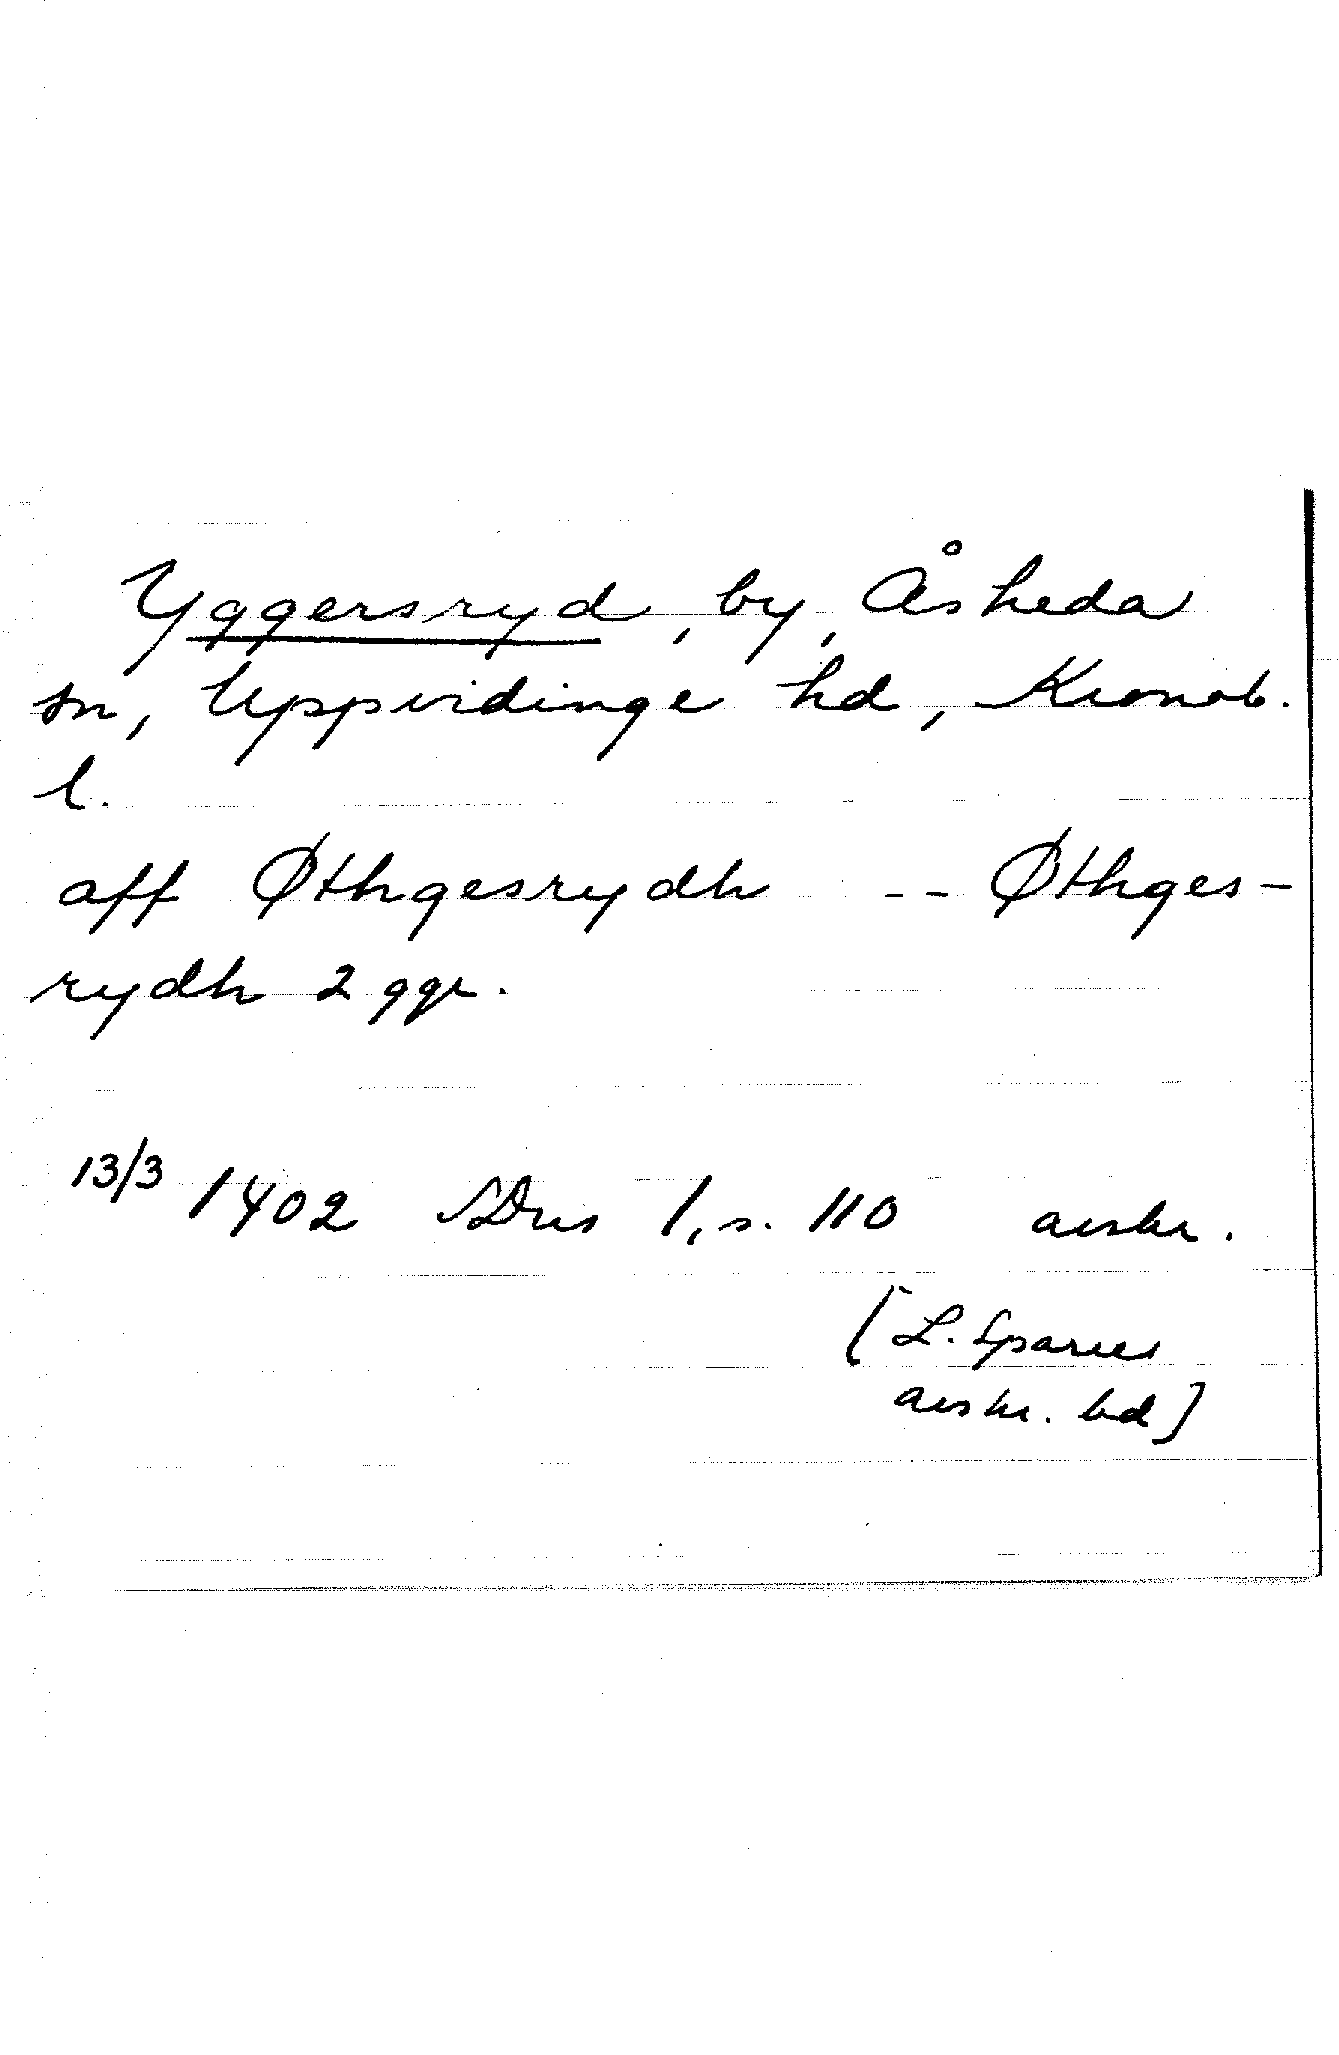 Yggersryd, by, Åsheda
sn, Uppvidinge hd, Kronob.
l.
aff Øthgesrydh -- Øthges-
rydh 2 ggr.
13/3 1402 SDns 1, s. 110 avskr.
[L. Sparres
avskr. bd]